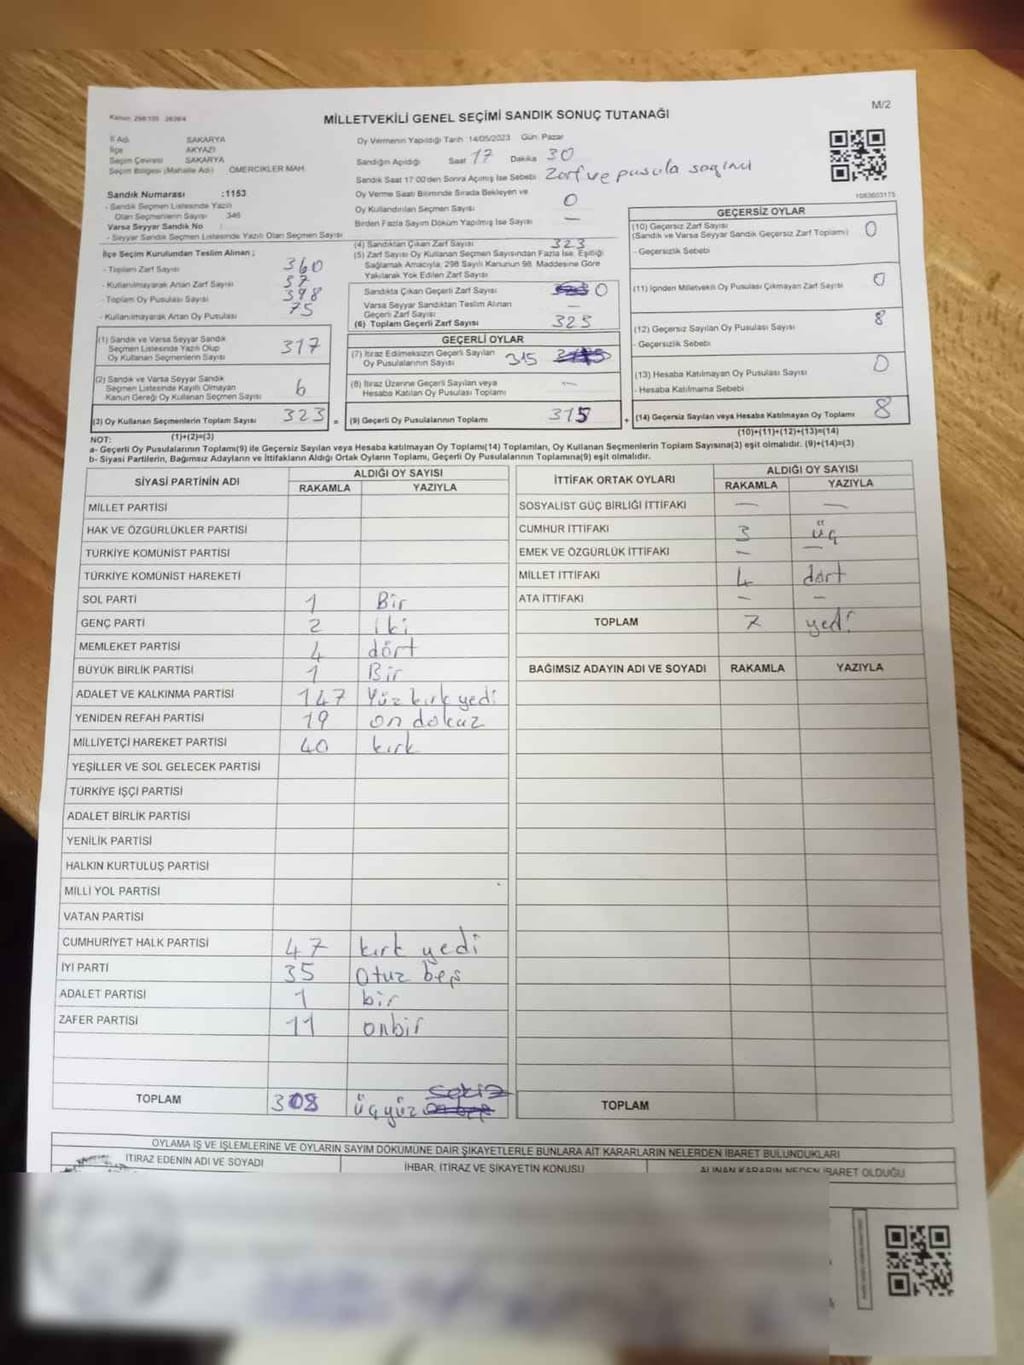 M/2
MİLLETVEKİLİ GENEL SEÇİMİ SANDIK SONUÇ TUTANAĞI
İl Adı SAKARYA
İlçe AKYAZI
Seçim Çevresi SAKARYA
Seçim Bölgesi (Mahalle Adı) ÖMERCİKLER MAH.
Sandık Numarası :1153
- Sandık Seçmen Listesinde Yazılı
Olan Seçmenlerin Sayısı 346
Varsa Seyyar Sandık No
- Seyyar Sandık Seçmen Listesinde Yazılı Olan Seçmen Sayısı
İlçe Seçim Kurulundan Teslim Alınan ;
- Toplam Zarf Sayısı 360
- Kullanılmayarak Artan Zarf Sayısı 37
- Toplam Oy Pusulası Sayısı 398
- Kullanılmayarak Artan Oy Pusulası 75
(1) Sandık ve Varsa Seyyar Sandık
Seçmen Listesinde Yazılı Olup
Oy Kullanan Seçmenlerin Sayısı 317
(2) Sandık ve Varsa Seyyar Sandık
Seçmen Listesinde Kayıtlı Olmayan
Kanun Gereği Oy Kullanan Seçmen Sayısı 6
(3) Oy Kullanan Seçmenlerin Toplam Sayısı 323 =
Oy Vermenin Yapıldığı Tarih 14/05/2023 Gün Pazar
Sandığın Açıldığı Saat 17 Dakika 30
Sandık Saat 17:00'den Sonra Açılmış İse Sebebi Zarf ve pusula sayımı
Oy Verme Saati Bitiminde Sırada Bekleyen ve
Oy Kullandırılan Seçmen Sayısı 0
Birden Fazla Sayım Döküm Yapılmış İse Sayısı —
(4) Sandıktan Çıkan Zarf Sayısı 323
(5) Zarf Sayısı Oy Kullanan Seçmen Sayısından Fazla İse, Eşitliği
Sağlamak Amacıyla, 298 Sayılı Kanunun 98. Maddesine Göre
Yakılarak Yok Edilen Zarf Sayısı
Sandıkta Çıkan Geçerli Zarf Sayısı 0
Varsa Seyyar Sandıktan Teslim Alınan
Geçerli Zarf Sayısı —
(6) Toplam Geçerli Zarf Sayısı 323
GEÇERLİ OYLAR
(7) İtiraz Edilmeksizin Geçerli Sayılan
Oy Pusulalarının Sayısı 315
(8) İtiraz Üzerine Geçerli Sayılan veya
Hesaba Katılan Oy Pusulası Toplamı —
(9) Geçerli Oy Pusulalarının Toplamı 315 +
1083603175
GEÇERSİZ OYLAR
(10) Geçersiz Zarf Sayısı
(Sandık ve Varsa Seyyar Sandık Geçersiz Zarf Toplamı) 0
- Geçersizlik Sebebi
(11) İçinden Milletvekili Oy Pusulası Çıkmayan Zarf Sayısı 0
(12) Geçersiz Sayılan Oy Pusulası Sayısı 8
- Geçersizlik Sebebi
(13) Hesaba Katılmayan Oy Pusulası Sayısı 0
- Hesaba Katılmama Sebebi
(14) Geçersiz Sayılan veya Hesaba Katılmayan Oy Toplamı 8
NOT: (1)+(2)=(3) (10)+(11)+(12)+(13)=(14)
a- Geçerli Oy Pusulalarının Toplamı(9) ile Geçersiz Sayılan veya Hesaba katılmayan Oy Toplamı(14) Toplamları, Oy Kullanan Seçmenlerin Toplam Sayısına(3) eşit olmalıdır. (9)+(14)=(3)
b- Siyasi Partilerin, Bağımsız Adayların ve İttifakların Aldığı Ortak Oyların Toplamı, Geçerli Oy Pusulalarının Toplamına(9) eşit olmalıdır.
SİYASİ PARTİNİN ADI ALDIĞI OY SAYISI
RAKAMLA YAZIYLA
MİLLET PARTİSİ
HAK VE ÖZGÜRLÜKLER PARTİSİ
TÜRKİYE KOMÜNİST PARTİSİ
TÜRKİYE KOMÜNİST HAREKETİ
SOL PARTİ 1 Bir
GENÇ PARTİ 2 iki
MEMLEKET PARTİSİ 4 dört
BÜYÜK BİRLİK PARTİSİ 1 Bir
ADALET VE KALKINMA PARTİSİ 147 Yüz kırk yedi
YENİDEN REFAH PARTİSİ 19 on dokuz
MİLLİYETÇİ HAREKET PARTİSİ 40 kırk
YEŞİLLER VE SOL GELECEK PARTİSİ
TÜRKİYE İŞÇİ PARTİSİ
ADALET BİRLİK PARTİSİ
YENİLİK PARTİSİ
HALKIN KURTULUŞ PARTİSİ
MİLLİ YOL PARTİSİ
VATAN PARTİSİ
CUMHURİYET HALK PARTİSİ 47 kırk yedi
İYİ PARTİ 35 Otuz beş
ADALET PARTİSİ 1 bir
ZAFER PARTİSİ 11 onbir
TOPLAM 308 üçyüz sekiz
İTTİFAK ORTAK OYLARI ALDIĞI OY SAYISI
RAKAMLA YAZIYLA
SOSYALİST GÜÇ BİRLİĞİ İTTİFAKI — —
CUMHUR İTTİFAKI 3 üç
EMEK VE ÖZGÜRLÜK İTTİFAKI — —
MİLLET İTTİFAKI 4 dört
ATA İTTİFAKI — —
TOPLAM 7 yedi
BAĞIMSIZ ADAYIN ADI VE SOYADI RAKAMLA YAZIYLA
TOPLAM
OYLAMA İŞ VE İŞLEMLERİNE VE OYLARIN SAYIM DÖKÜMÜNE DAİR ŞİKAYETLERLE BUNLARA AİT KARARLARIN NELERDEN İBARET BULUNDUKLARI
İTİRAZ EDENİN ADI VE SOYADI İHBAR, İTİRAZ VE ŞİKAYETİN KONUSU ALINAN KARARIN NEDEN İBARET OLDUĞU